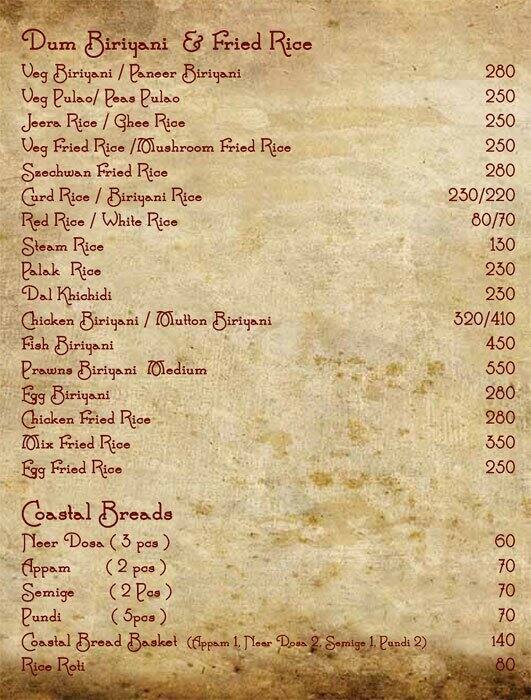 Dum Biriyani & Fried Rice
Veg Biriyani / Paneer Biriyani 280
Veg Pulao/ Peas Pulao 250
Jeera Rice / Ghee Rice 250
Veg Fried Rice /Mushroom Fried Rice 250
Szechwan Fried Rice 280
Curd Rice / Biriyani Rice 230/220
Red Rice / White Rice 80/70
Steam Rice 130
Palak Rice 230
Dal Khichidi 230
Chicken Biriyani / Mutton Biriyani 320/410
Fish Biriyani 450
Prawns Biriyani Medium 550
Egg Biriyani 280
Chicken Fried Rice 280
Mix Fried Rice 350
Egg Fried Rice 250
Coastal Breads
Neer Dosa ( 3 pcs ) 60
Appam ( 2 pcs ) 70
Semige ( 2 Pcs ) 70
Pundi ( 5pcs ) 70
Coastal Bread Basket (Appam 1, Neer Dosa 2, Semige 1, Pundi 2) 140
Rice Roti 80